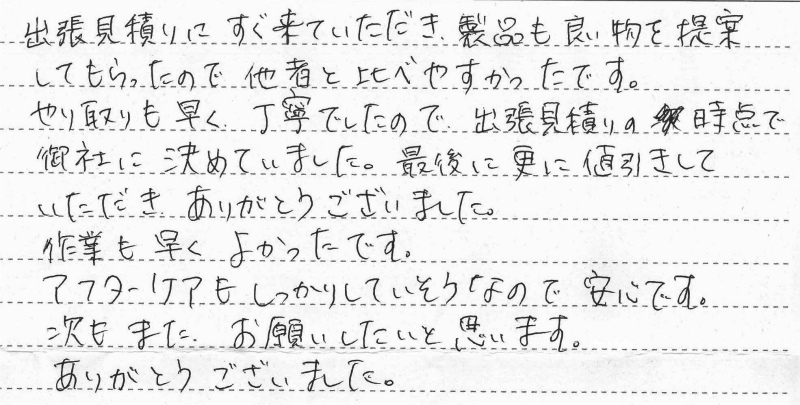 出張見積りに すぐ来ていただき、製品も良い物を提案
してもらったので 他者と比べやすかったです。
やり取りも早く、丁寧でしたので、出張見積りの 時点で
御社に決めていました。最後に更に値引きして
いただき、ありがとうございました。
作業も早く よかったです。
アフターケアも しっかりしていそうなので 安心です。
次もまた、お願いしたいと思います。
ありがとうございました。